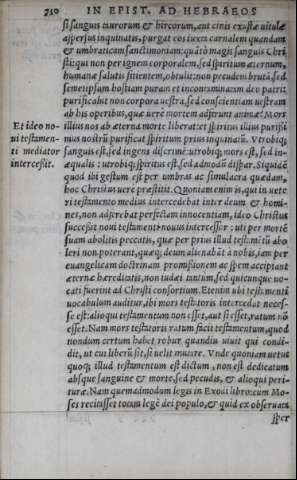 710 IN EPIST. AD HEBRAEOS
si sanguis taurorum & hircorum, aut cinis exustæ uitulæ
aspersus inquinatis, purgat eos iuxta carnalem quandam
& umbraticam sanctimoniam: quãtò magis sanguis Chri
sti: qui non per ignem corporalem, sed spiritum æternum,
humanæ salutis sitientem, obtulit: non pecudem brutã, sed
semetipsum hostiam puram et incontaminatam deo patri:
purificabit non corpora uestra, sed conscientiam uestram
ab his operibus, quæ uerè mortem adferunt animæ? Mors
Et ideo no- illius nos ab æterna morte liberat: et spiritus illius purissi-
ui testamen- mus nostrũ purificat spiritum prius inquinatũ. Vtrobiq;
ti mediator sanguis est, sed ingens discrimē: utrobiq; mors est, sed in-
intercessit. æqualis: utrobiq; spiritus est, sed admodũ dispar. Siquidē
quod ibi gestum est per umbras ac simulacra quædam,
hoc Christus uerè præstitit. Quoniam enim is, qui in uete
ri testamento medius intercedebat inter deum & homi-
nes, non adferebat perfectam innocentiam, ideo Christus
successit noui testamenti nouus intercessor: uti per mortē
suam abolitis peccatis, quæ per prius illud testamẽtũ abo
leri non poterant, quæq; deum alienabãt à nobis, iam per
euangelicam doctrinam promissionem ac spem accipiant
æternæ hæreditatis, non iudæi tantum, sed quicunque uo-
cati fuerint ad Christi consortium. Etenim ubi testamenti
uocabulum auditur, ibi mors testatoris intercedat neces-
se est: alioqui testamentum non esset, aut si esset, ratum nõ
esset. Nam mors testatoris ratum facit testamentum, quod
nondum certum habet robur quandiu uiuit qui condi-
dit, ut cui liberũ sit, si uelit mutare. Vnde quoniam uetus
quoq; illud testamentum est dictum, non est dedicatum
absque sanguine & morte, sed pecudis, & alioqui peri-
turæ. Nam quemadmodum legis in Exodi libro: cum Mo-
ses recitasset totam legē dei populo, & quid ex obseruata
sper